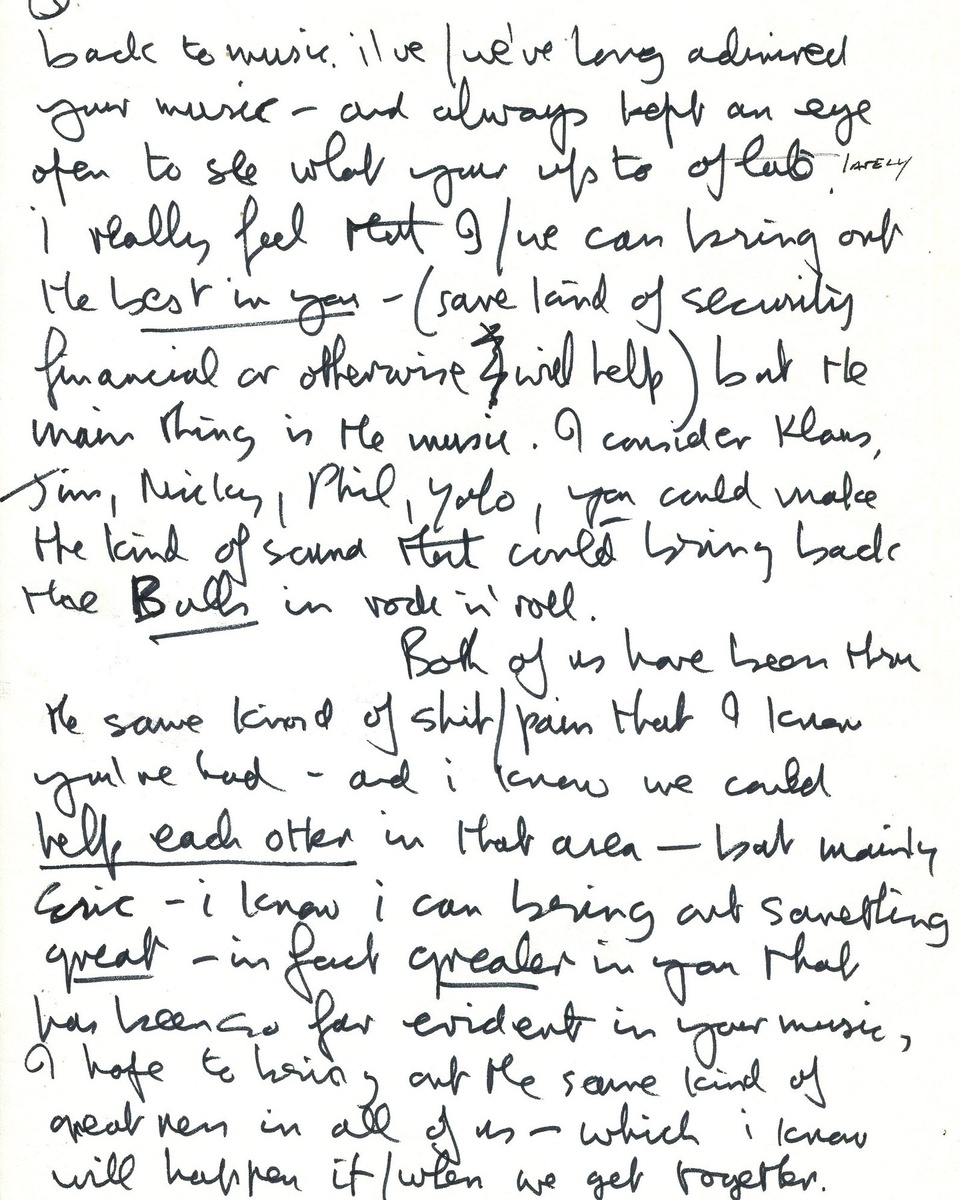 back to music. i/ve/we've long admired
your music – and always kept an eye
open to see what your up to of late. lately
i really feel that I/we can bring out
the best in you – (some kind of security
financial or otherwise will help) but the
main thing is the music. I consider Klaus,
Jim, Nicky, Phil, Yoko, you could make
the kind of sound that could bring back
the Balls in rock 'n' roll.
Both of us have been thru
the same kind of shit/pain that I know
you've had – and i know we could
help each other in that area – but mainly
Eric – i know i can bring out something
great – in fact greater in you that
has been so far evident in your music,
I hope to bring out the same kind of
greatness in all of us – which i know
will happen if/when we get together.